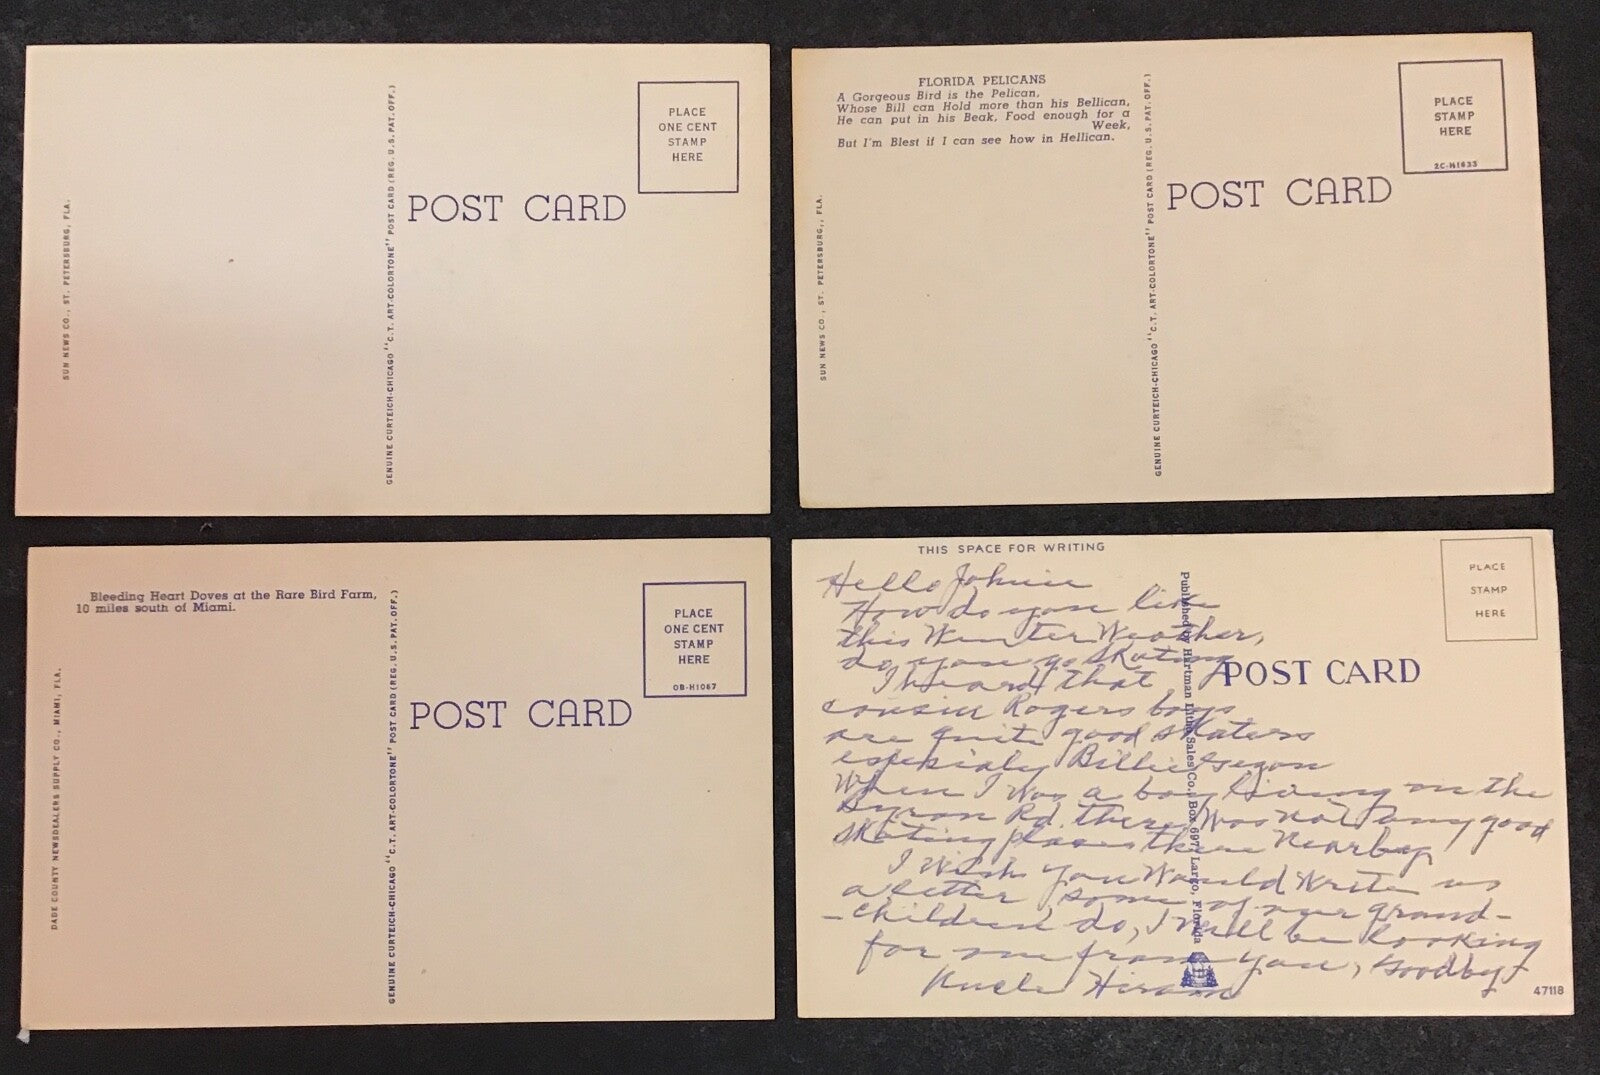 PLACE
ONE CENT
STAMP
HERE
POST CARD
SUN NEWS CO., ST. PETERSBURG, FLA.
GENUINE CURTEICH-CHICAGO "C.T. ART-COLORTONE" POST CARD (REG. U.S. PAT. OFF.)
FLORIDA PELICANS
A Gorgeous Bird is the Pelican,
Whose Bill can Hold more than his Bellican,
He can put in his Beak, Food enough for a
Week,
But I'm Blest if I can see how in Hellican.
PLACE
STAMP
HERE
2C-H1635
POST CARD
SUN NEWS CO., ST. PETERSBURG,, FLA.
GENUINE CURTEICH-CHICAGO "C.T. ART-COLORTONE" POST CARD (REG. U.S. PAT. OFF.)
Bleeding Heart Doves at the Rare Bird Farm,
10 miles south of Miami.
PLACE
ONE CENT
STAMP
HERE
OB-H1067
POST CARD
DADE COUNTY NEWSDEALERS SUPPLY CO., MIAMI, FLA.
GENUINE CURTEICH-CHICAGO "C.T. ART-COLORTONE" POST CARD (REG. U.S. PAT. OFF.)
THIS SPACE FOR WRITING
PLACE
STAMP
HERE
POST CARD
Published by Hartman Litho Sales Co., Box 697, Largo, Florida
Hello Johnie
How do you like
this Winter Weather,
do you go Skating
I heard that
cousin Rogers boys
are quite good skaters
especialy Billie
When I was a boy living on the
Byron Rd. there was not any good
skating places there Nearby
I Wish you Would Write us
a letter some of our grand-
-children do, I will be looking
for one from you, goodby
Uncle Hiram
47118